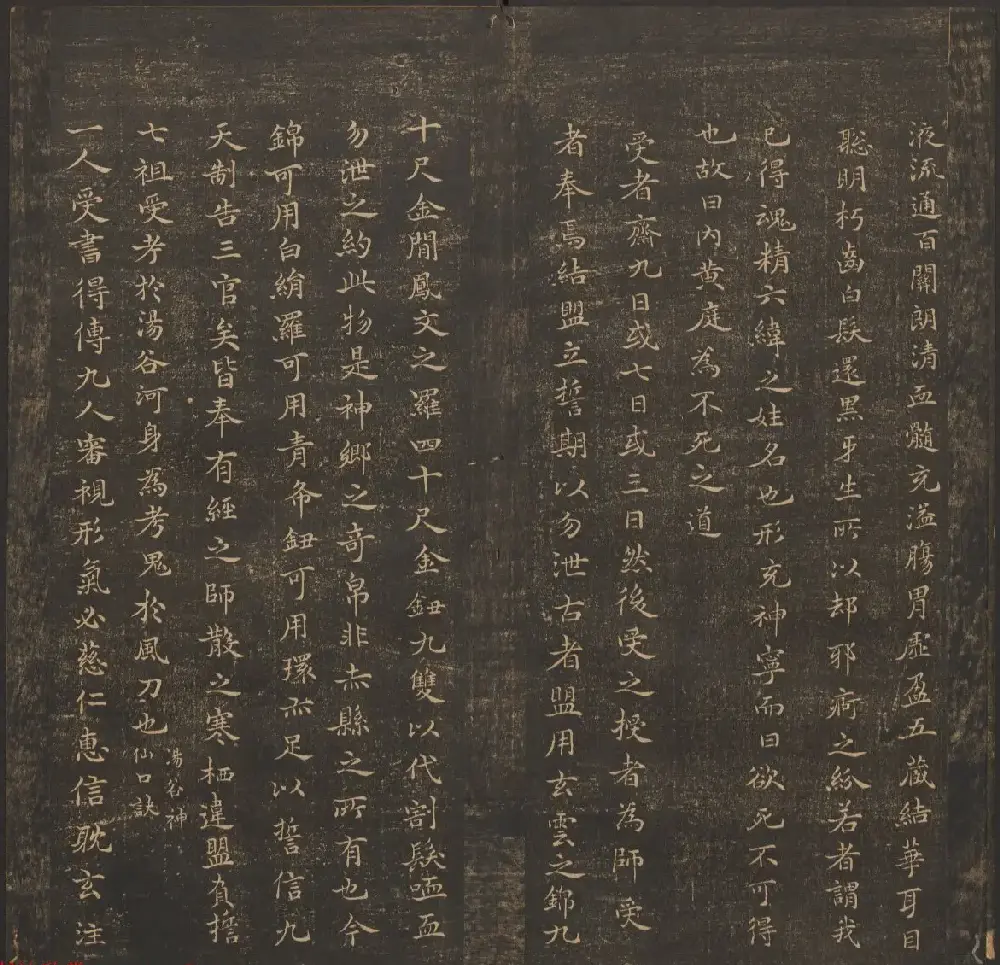 液流通百關朗清血髓充溢腸胃虛盈五藏結華耳目
聡明朽齒白髮還黑牙生所以却邪痾之紛若者謂我
已得魂精六緯之姓名也形充神寧而曰欲死不可得
也故曰內黃庭為不死之道
受者齋九日或七日或三日然後受之授者為師受
者奉焉結盟立誓期以勿泄古者盟用玄雲之錦九
十尺金簡鳳文之羅四十尺金鈕九雙以代割髮歃血
勿泄之約此物是神鄉之奇帛非赤縣之所有也今
錦可用白絹羅可用青布鈕可用環亦足以誓信九
天制告三官矣皆奉有經之師散之寒栖違盟負誓
七祖受考於湯谷河身為考鬼於風刀也湯谷神仙口訣
一人受書得傳九人審視形氣必慈仁惠信耽玄注